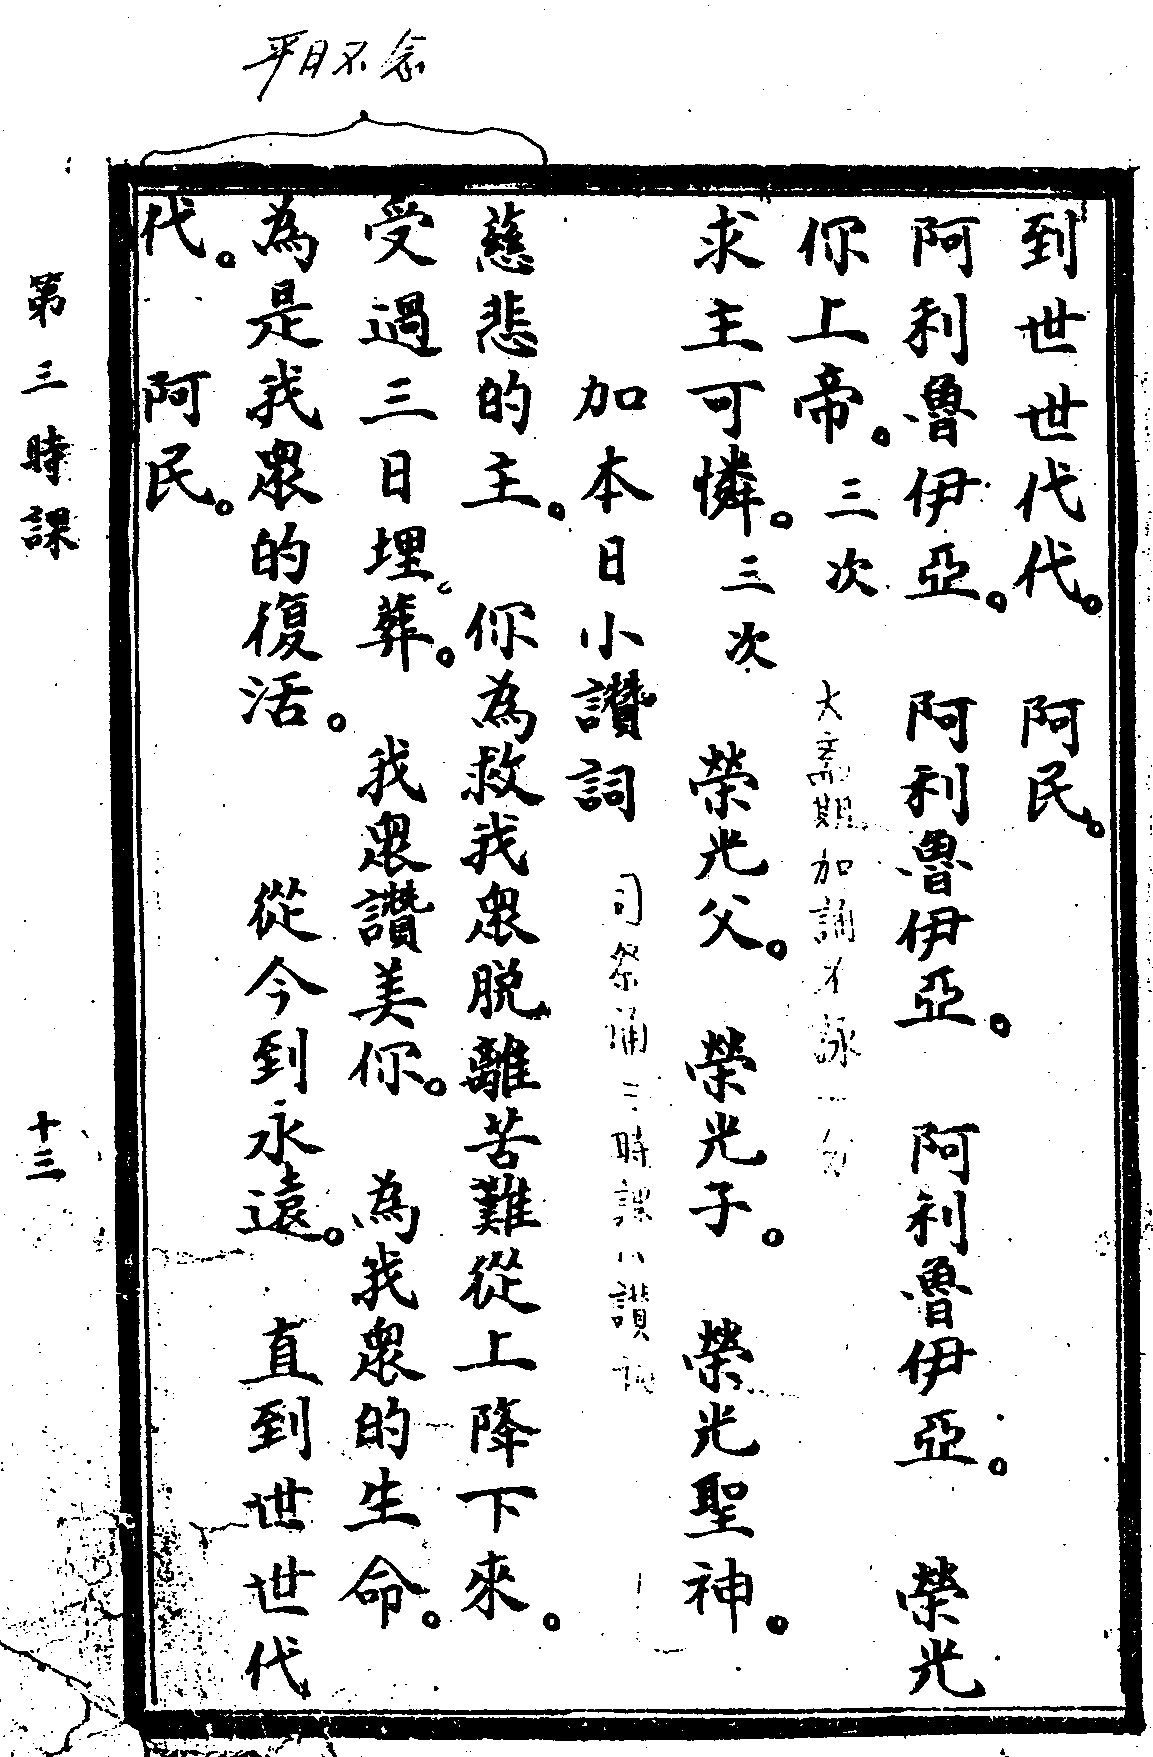 平日不念
到世世代代。 阿民。
阿利魯伊亞。 阿利魯伊亞。 阿利魯伊亞。 榮光
你上帝。三次 大齋期加誦不詠一
求主可憐。三次 榮光父。 榮光子。 榮光聖神。
加本日小讚詞 司祭誦三時課小讚詞
慈悲的主。 你為救我眾脱離苦難從上降下來。
受過三日埋葬。 我眾讚美你。 為我眾的生命。
為是我眾的復活。 從今到永遠。 直到世世代
代。 阿民。
第三時課
十三